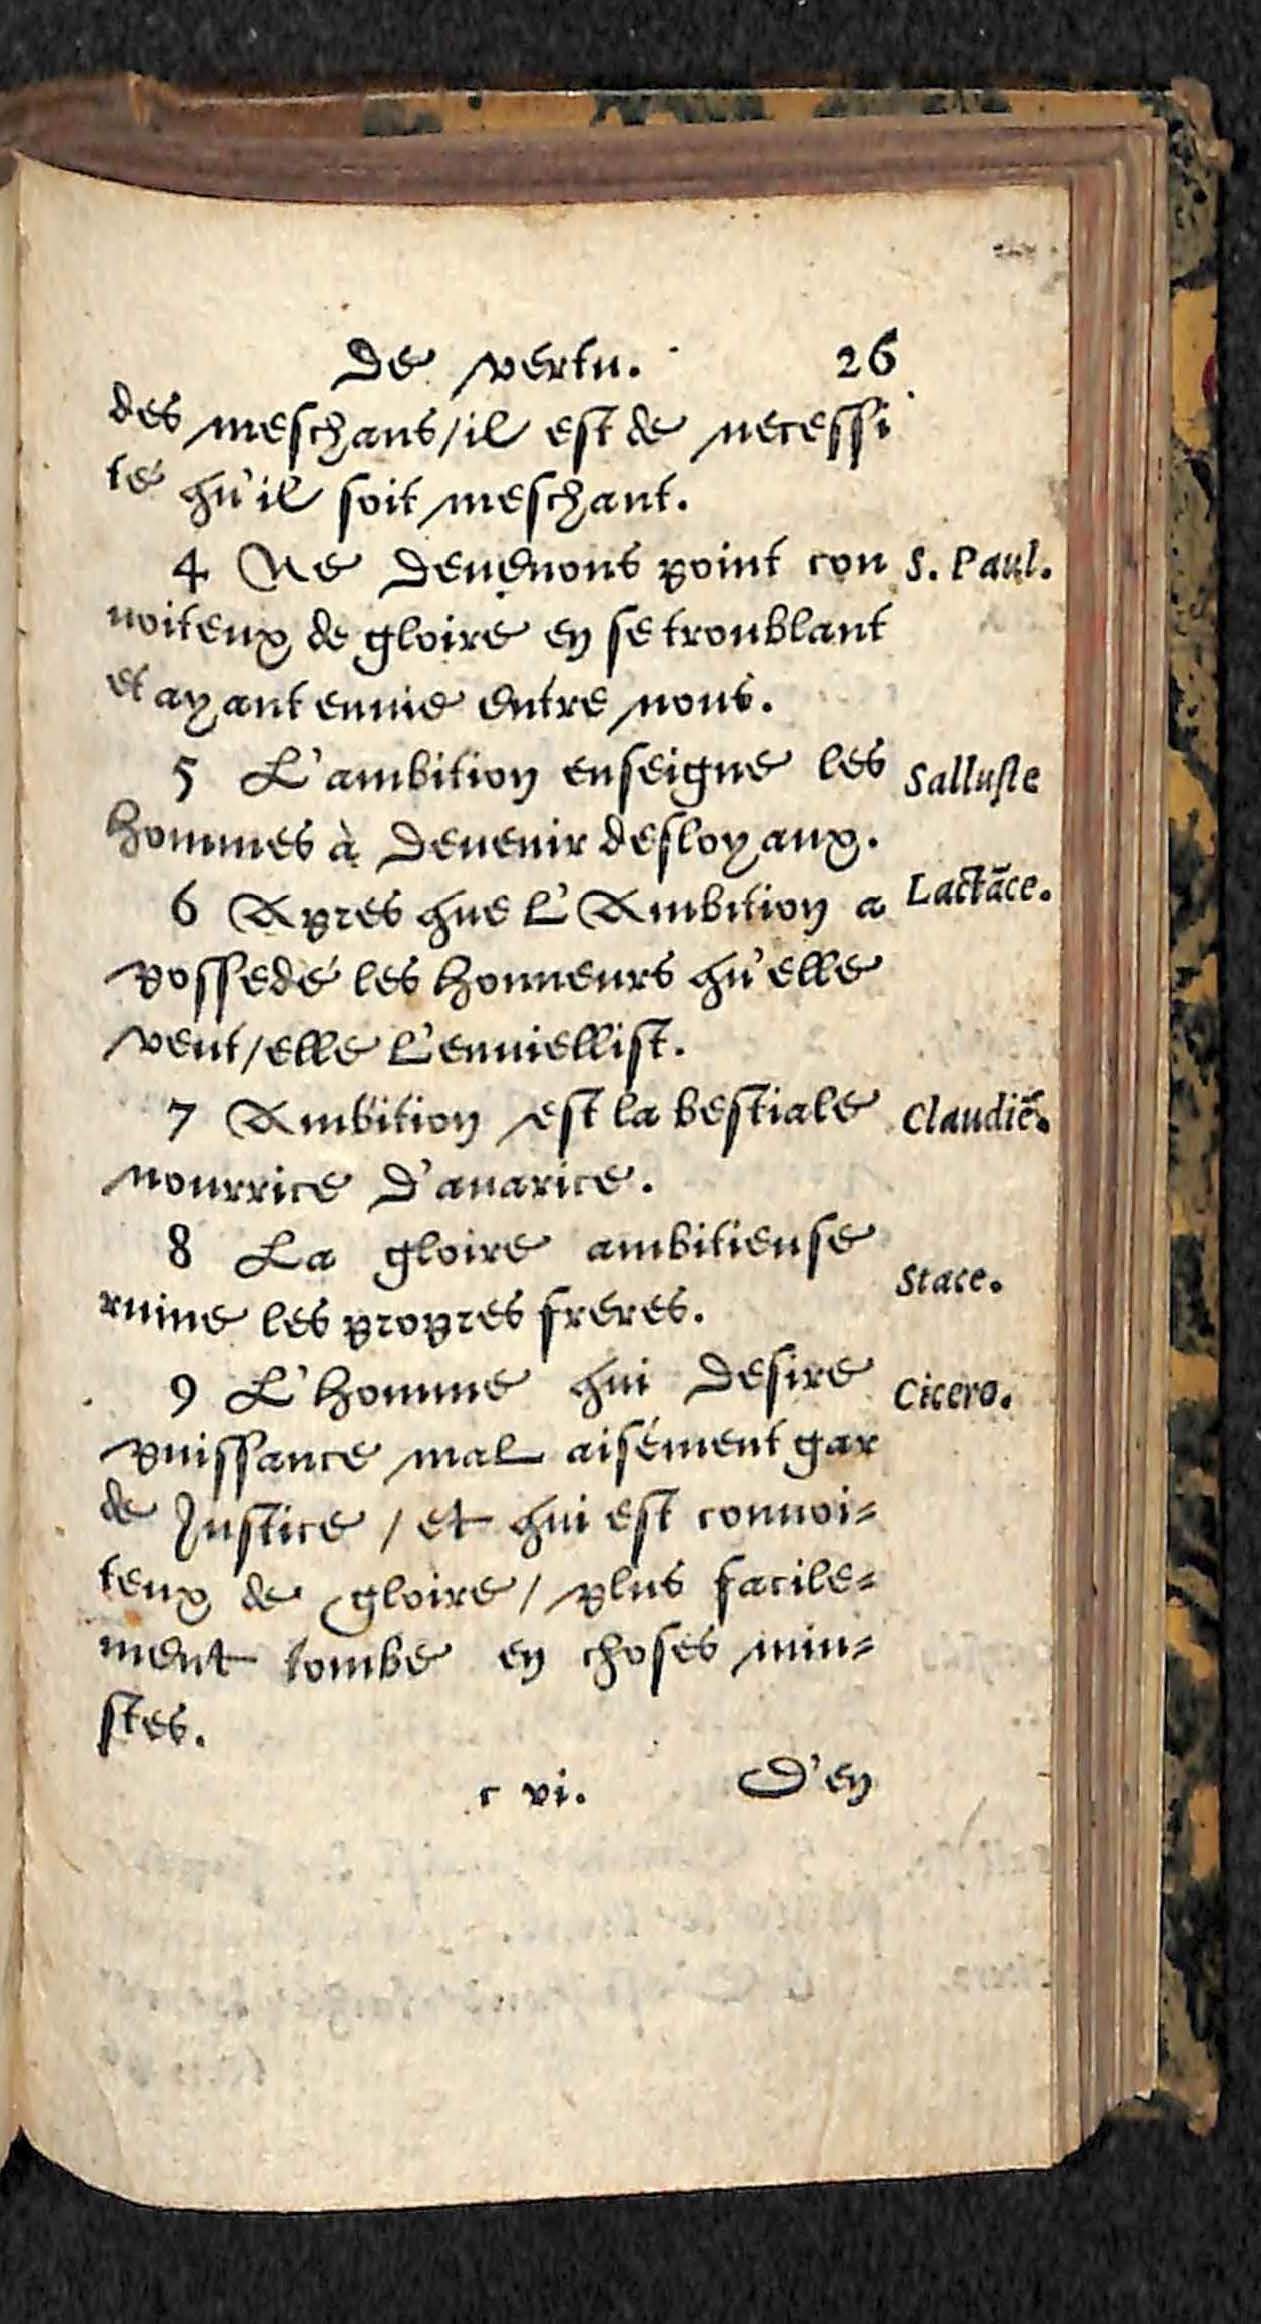 De vertu. 26
des meschans/il est de necessi
té qu'il soit meschant.
4 Ne deuenons point con S. Paul.
uoiteux de gloire en se troublant
et ayant enuie entre nous.
5 L'ambition enseigne les Salluste
hommes à deuenir desloyaux.
6 Apres que l'Ambition a Lactãce.
possedé les honneurs qu'elle
veut/elle l'enuiellist.
7 Ambition est la bestiale Claudiẽ.
nourrice d'auarice.
8 La gloire ambitieuse
ruine les propres freres. Stace.
9 L'homme qui desire Cicero.
puissance mal aisément gar
de Justice / et qui est conuoi=
teux de gloire / plus facile=
ment tombe en choses iniu=
stes.
c vi. D'en